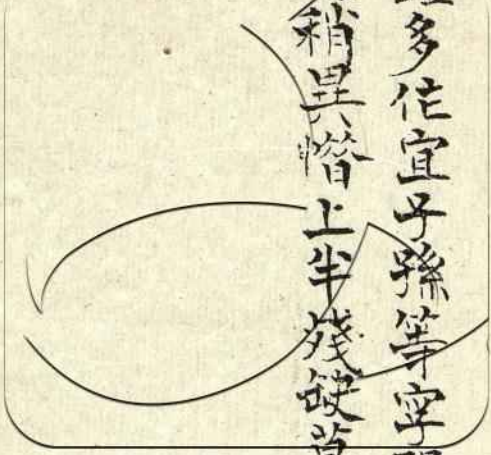 多作宜子孫等字
稍異惜上半殘缺